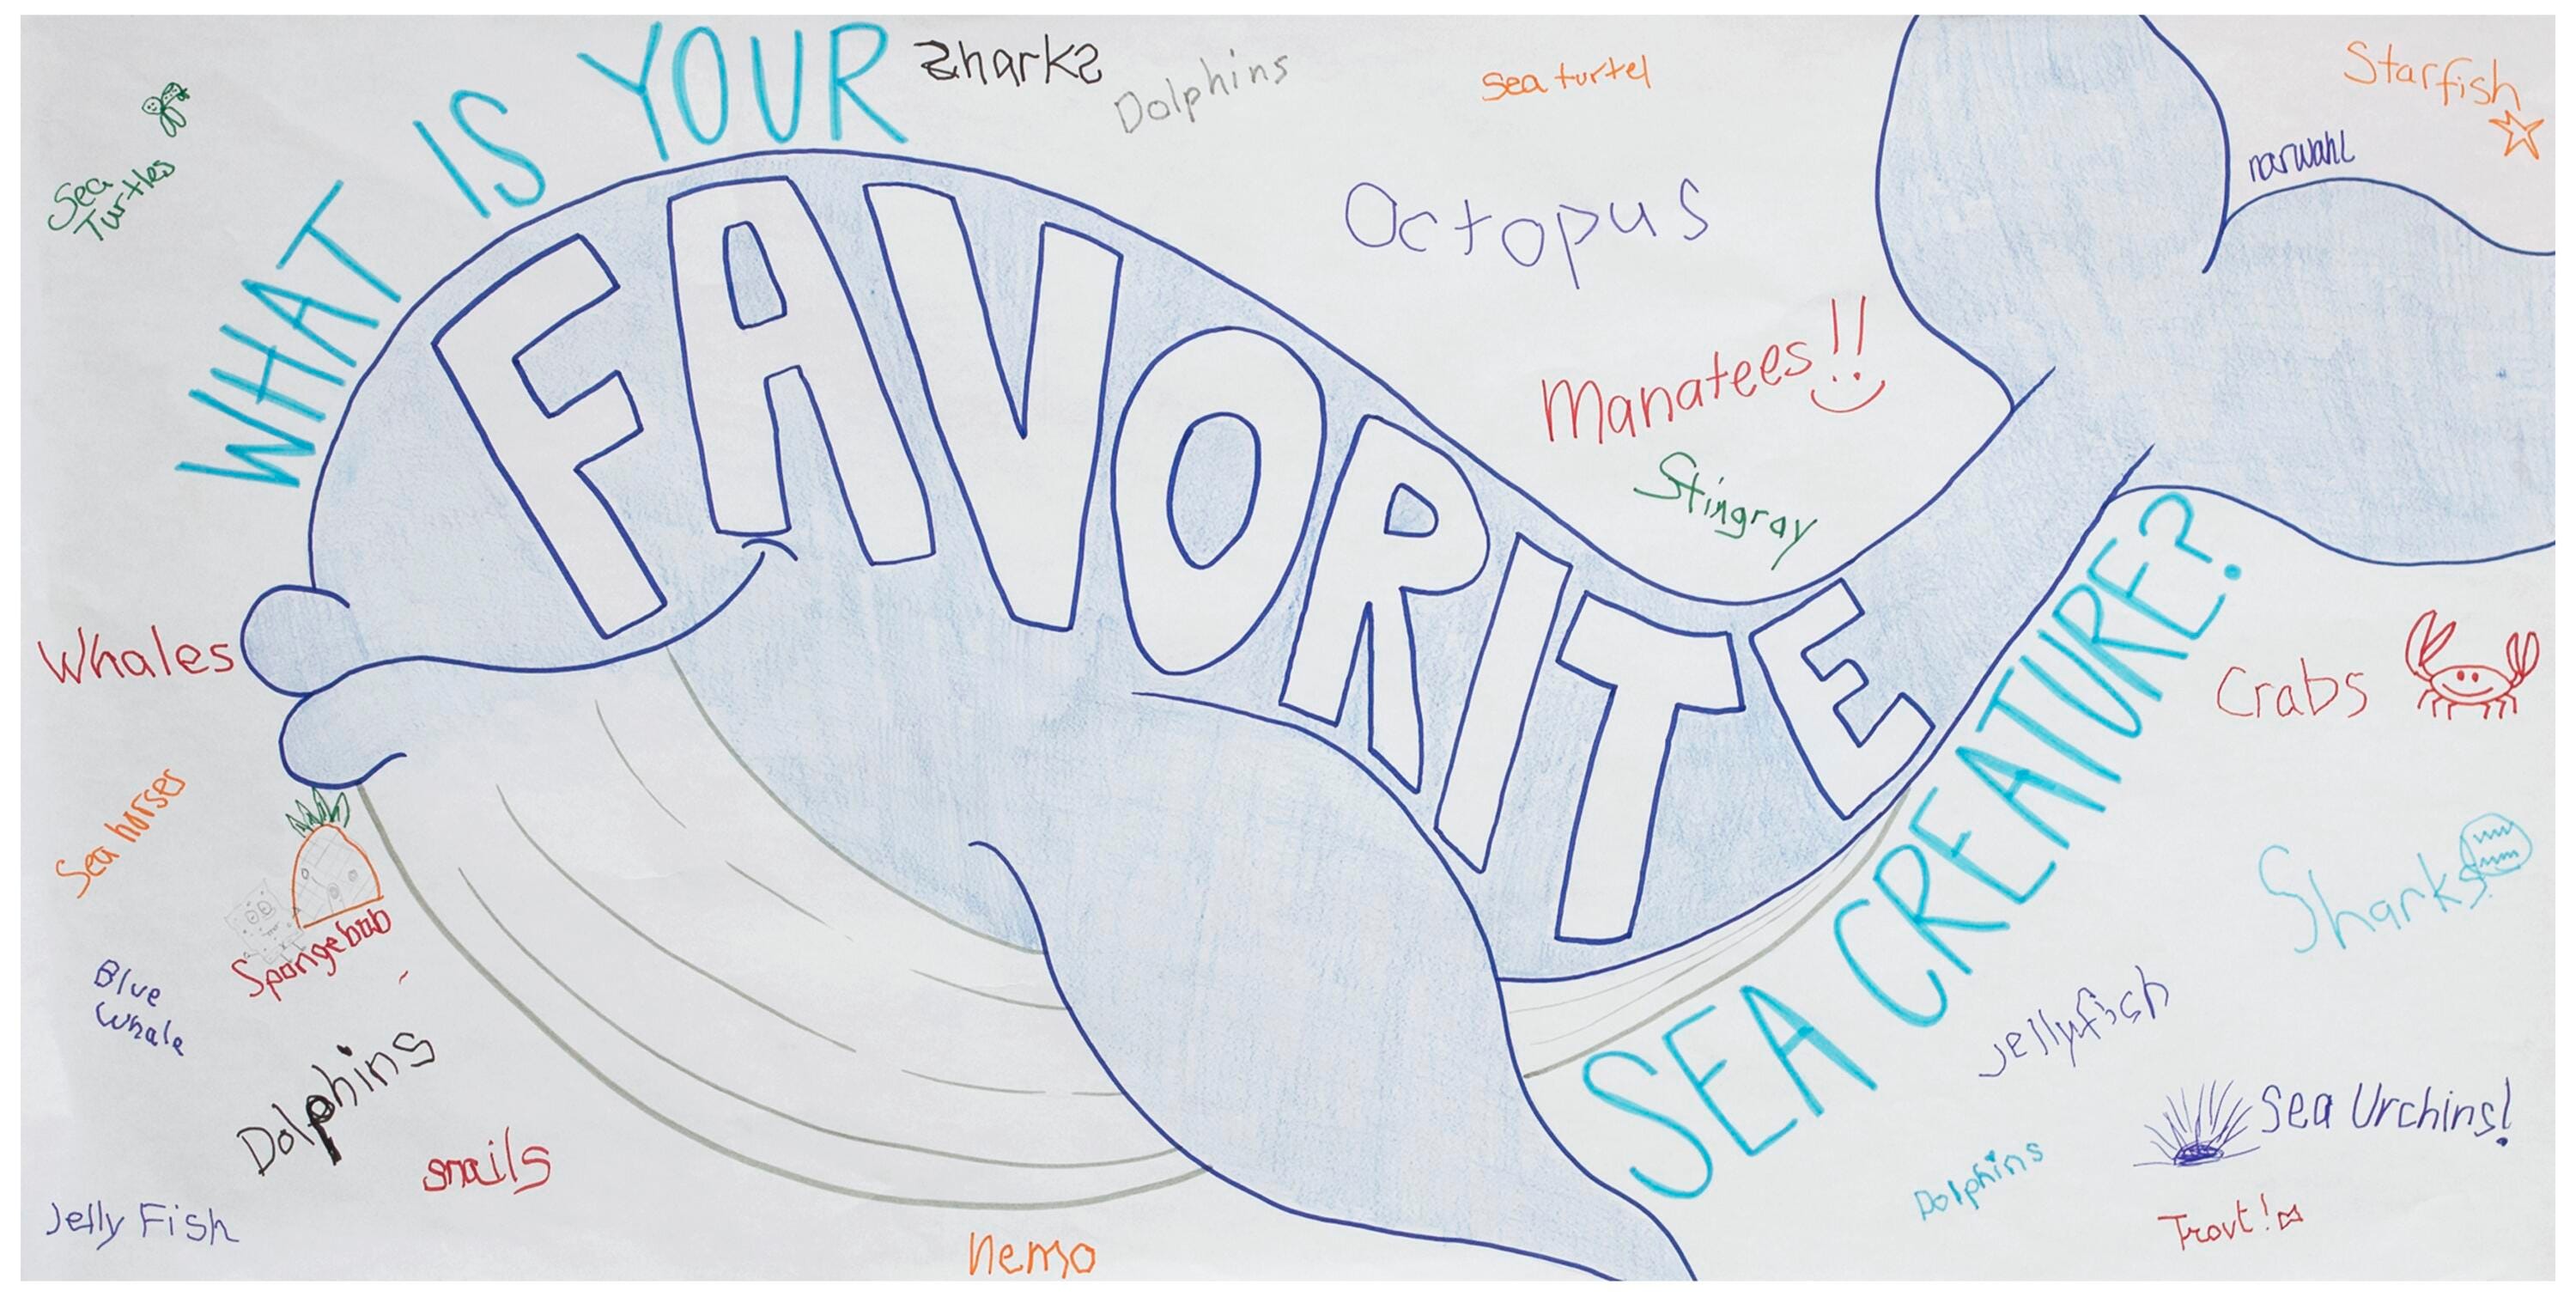 WHAT IS YOUR
FAVORITE
SEA CREATURE?
Sharks
Dolphins
Sea turtel
Starfish
narwahl
Sea
Turtles
Octopus
Manatees!!
Stingray
Whales
Crabs
Sea horses
Spongebob
Sharks!
Blue
Whale
Dolphins
Jellyfish
Sea Urchins!
snails
Dolphins
Jelly Fish
Trout!
Nemo